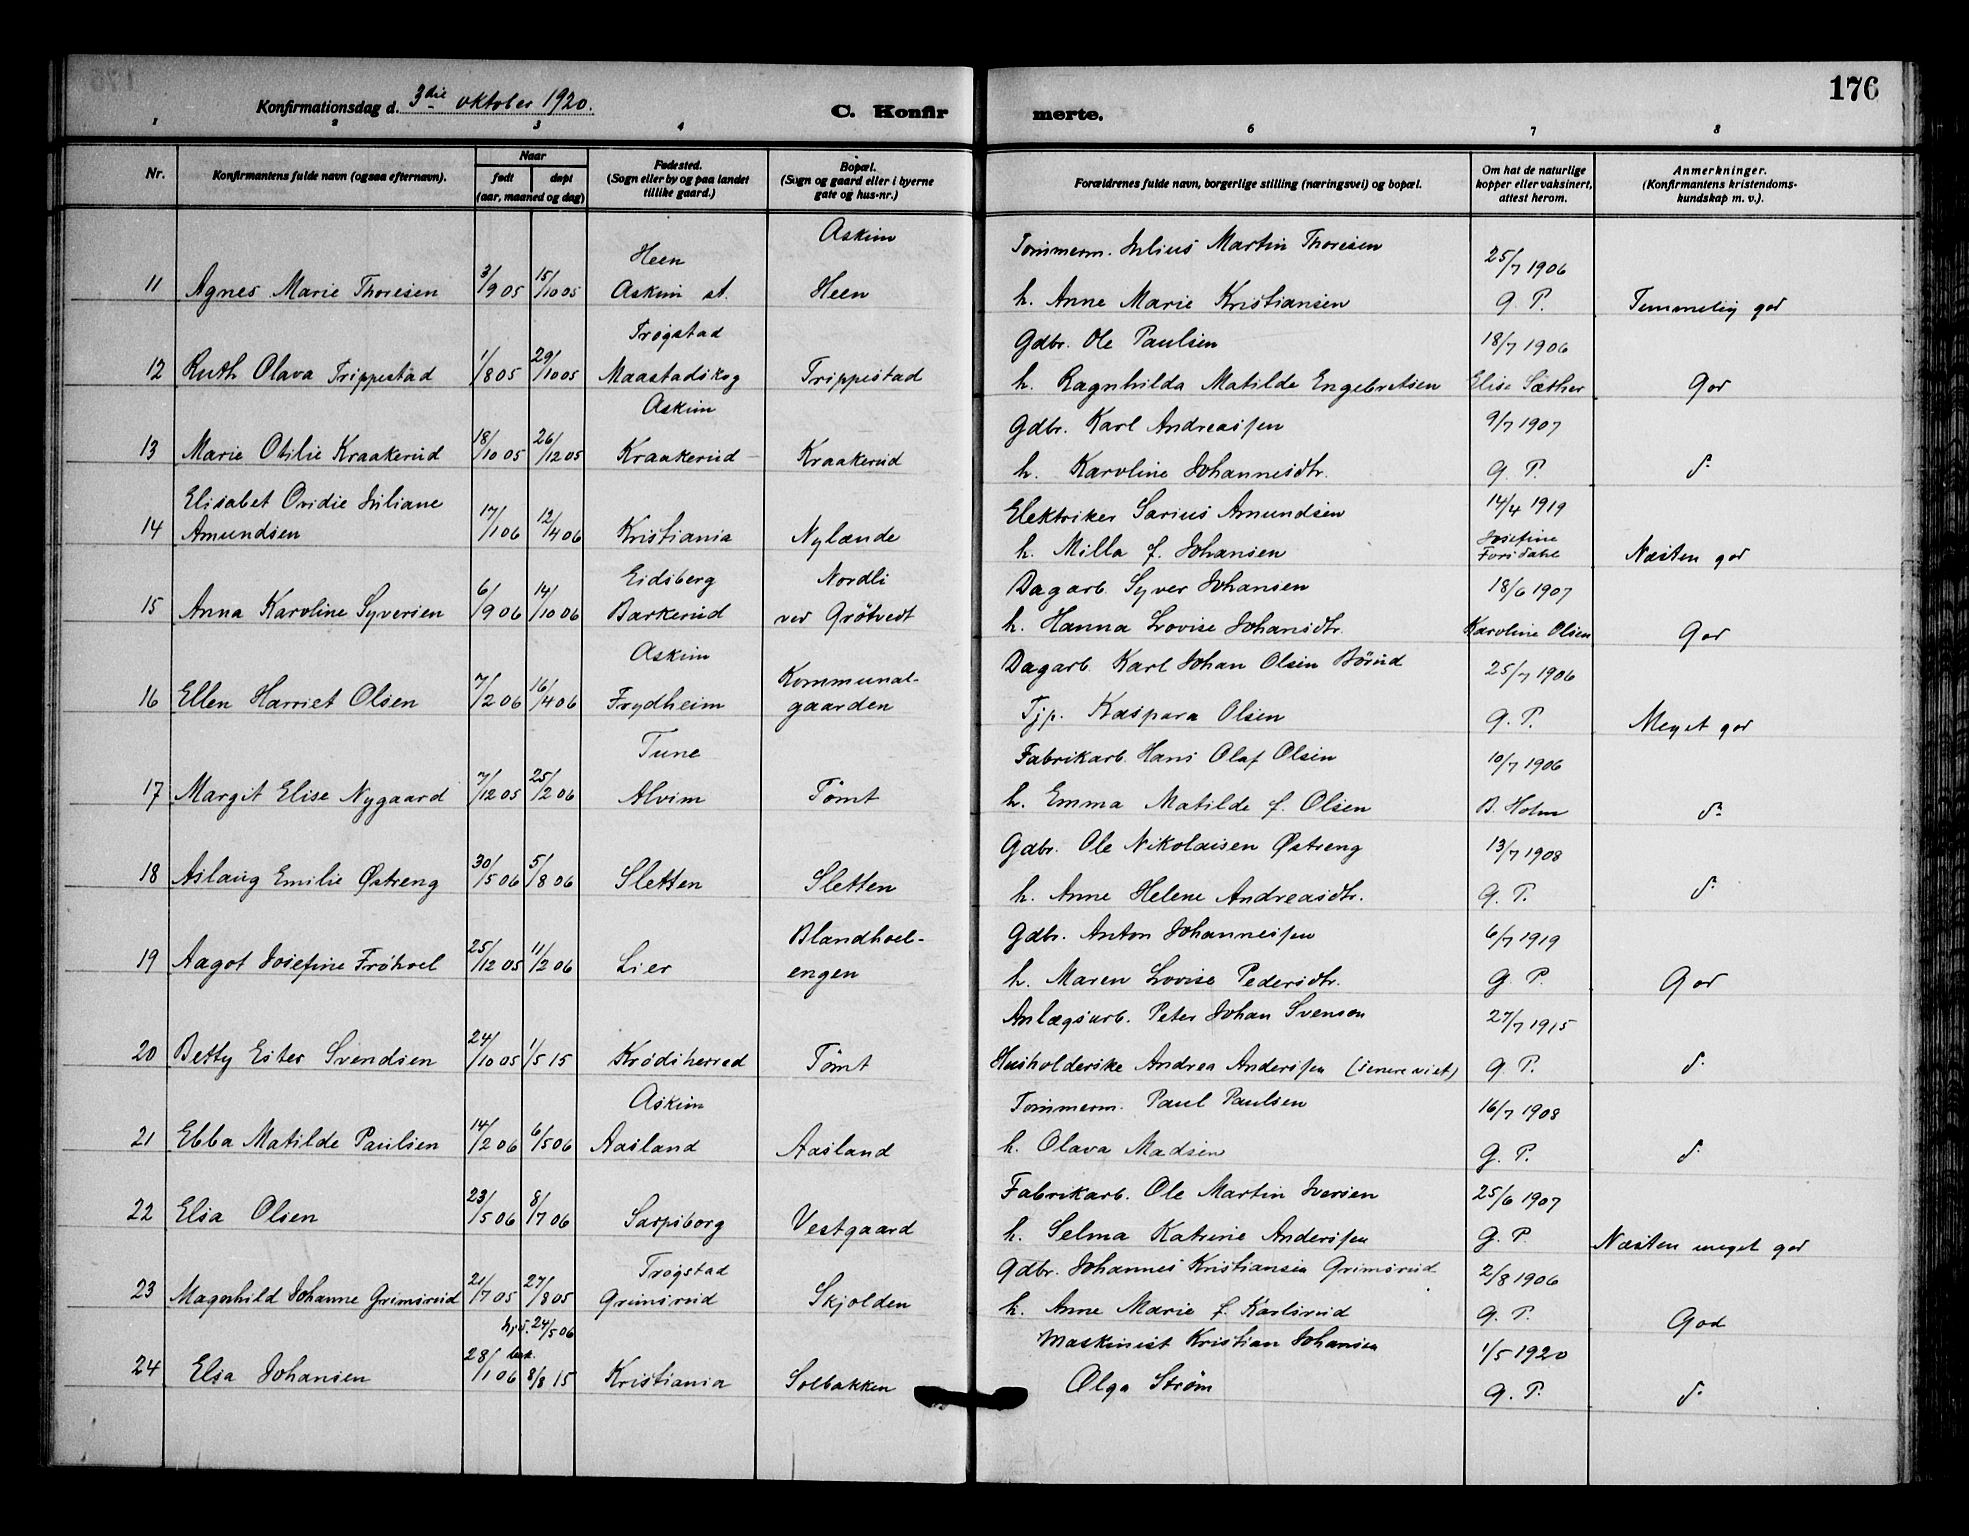 176
Konfirmationsdag d. 3die oktober 1920.
C. Konfirmerte.
1 2 3 4 6 7 8
Nr.
Konfirmantens fulde navn (ogsaa efternavn).
Naar
født døpt
(aar, maaned og dag)
Fødested.
(Sogn eller by og paa landet
tillike gaard.)
Bopæl.
(Sogn og gaard eller i byerne
gate og hus-nr.)
Forældrenes fulde navn, borgerlige stilling (næringsvei) og bopæl.
Om hat de naturlige
kopper eller vaksinert,
attest herom.
Anmerkninger.
(Konfirmantens kristendoms-
kundskap m. v.).
Heen Askim Tømmerm. Julius Martin Thoresen 25/7 1906
11 Agnes Marie Thoresen 3/9 05 15/10 05 Askim st. Heen h. Anne Marie Kristiansen G. P. Temmelig god
Trøgstad Gdbr. Ole Paulsen 18/7 1906
12 Ruth Olava Trippestad 1/8 05 29/10 05 Maastadskog Trippestad h. Ragnhilda Matilde Engebretsen Elise Sæther God
Askim Gdbr. Karl Andreassen 9/7 1907
13 Marie Otilie Kraakerud 18/10 05 26/12 05 Kraakerud Kraakerud h. Karoline Johannesdtr. G. P. d:
Elisabet Ovidie Juliane Elektriker Sarius Amundsen 14/4 1919
14 Amundsen 17/1 06 12/4 06 Kristiania Nylænde h. Milla f. Johansen Josefine Forsdahl Næsten god
Eidsberg Nordli Dagarb. Syver Johansen 18/6 1907
15 Anna Karoline Syversen 6/9 06 14/10 06 Barkerud ved Grøtvedt h. Hanna Lovise Johansdtr. Karoline Olsen God
Askim Kommunal- Dagarb. Karl Johan Olsen Børud 25/7 1906
16 Ellen Harriet Olsen 7/2 06 16/4 06 Frydheim gaarden Tjp. Kaspara Olsen G. P. Meget god
Tune Fabrikarb. Hans Olaf Olsen 10/7 1906
17 Margit Elise Nygaard 7/12 05 25/2 06 Alvim Tømt h. Emma Matilde f. Olsen B. Holm d:
Gdbr. Ole Nikolaisen Østreng 13/7 1908
18 Aslaug Emilie Østreng 30/5 06 5/8 06 Sletten Sletten h. Anne Helene Andreasdtr. G. P. d:
Blandhoel- Gdbr. Anton Johannessen 6/7 1919
19 Aagot Josefine Frøhoel 25/12 05 11/2 06 Lier engen h. Maren Lovise Pedersdtr. G. P. God
Anlægsarb. Peter Johan Svenson 27/7 1915
20 Betty Ester Svendsen 24/10 05 1/5 15 Krødsherred Tømt Husholderske Andrea Anderssen (senere viet) G. P. d:
Askim Tømmerm. Paul Paulsen 16/7 1908
21 Ebba Matilde Paulsen 14/2 06 6/5 06 Aasland Aasland h. Olava Madsen G. P. d:
Fabrikarb. Ole Martin Iversen 25/6 1907
22 Elsa Olsen 23/5 06 8/7 06 Sarpsborg Vestgaard h. Selma Katrine Anderssen G. P. Næsten meget god
Trøgstad Gdbr. Johannes Kristiansen Grimsrud 2/8 1906
23 Magnhild Johanne Grimsrud 21/7 05 27/8 05 Grimsrud Skjolden h. Anne Marie f. Karlsrud G. P. God
24/5 06 Maskinist Kristian Johansen 1/5 1920
24 Elsa Johansen 28/1 06 8/8 15 Kristiania Solbakken Olga Strøm G. P. d: